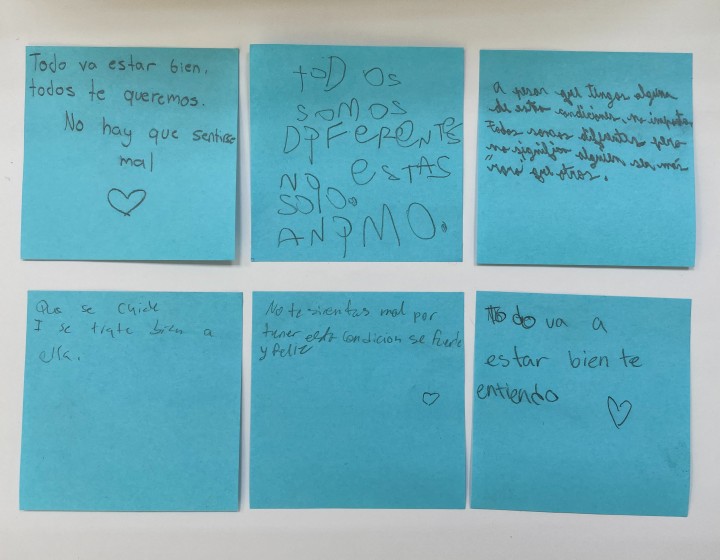 Todo va estar bien,
todos te queremos.
No hay que sentirse
mal
toD OS
SOMOS
DIFERENTES
NO ESTAS
SOlO.
ANIMO.
A pesar que tengas alguna
de esta condición, no importa
todos somos diferentes pero
no significa alguien sea más
"raro" que otros.
Que se cuide
I se trate bien a
ella.
No te sientas mal por
tener esta condicion se fuerte
y feliz
Todo va a
estar bien te
entiendo